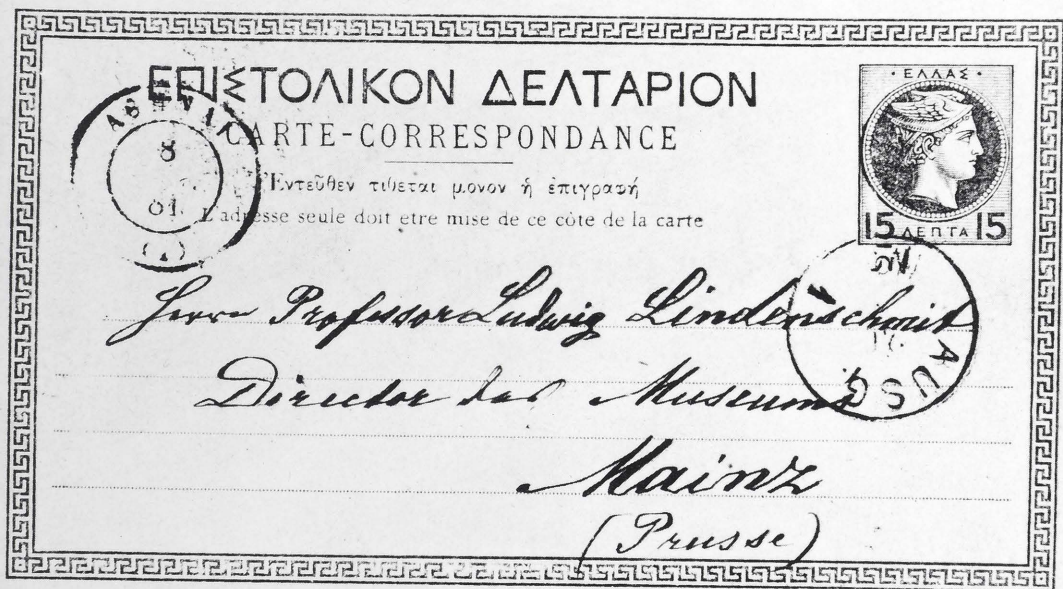 ΕΠΙΣΤΟΛΙΚΟΝ ΔΕΛΤΑΡΙΟΝ
CARTE-CORRESPONDANCE
Ἐντεῦθεν τίθεται μόνον ἡ ἐπιγραφή
L'adresse seule doit etre mise de ce côte de la carte
· ΕΛΛΑΣ ·
15 ΛΕΠΤΑ 15
8
81
(1)
1
AUSG
Herrn Professor Ludwig Lindenschmit
Director des Museums
Mainz
(Prusse)